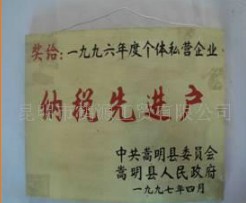 奖给:一九九六年度个体私营企业
纳税先进户
中共嵩明县委员会
嵩明县人民政府
一九九七年四月